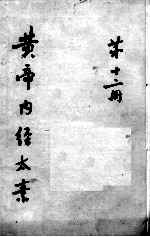 第十二册
黄帝内经太素